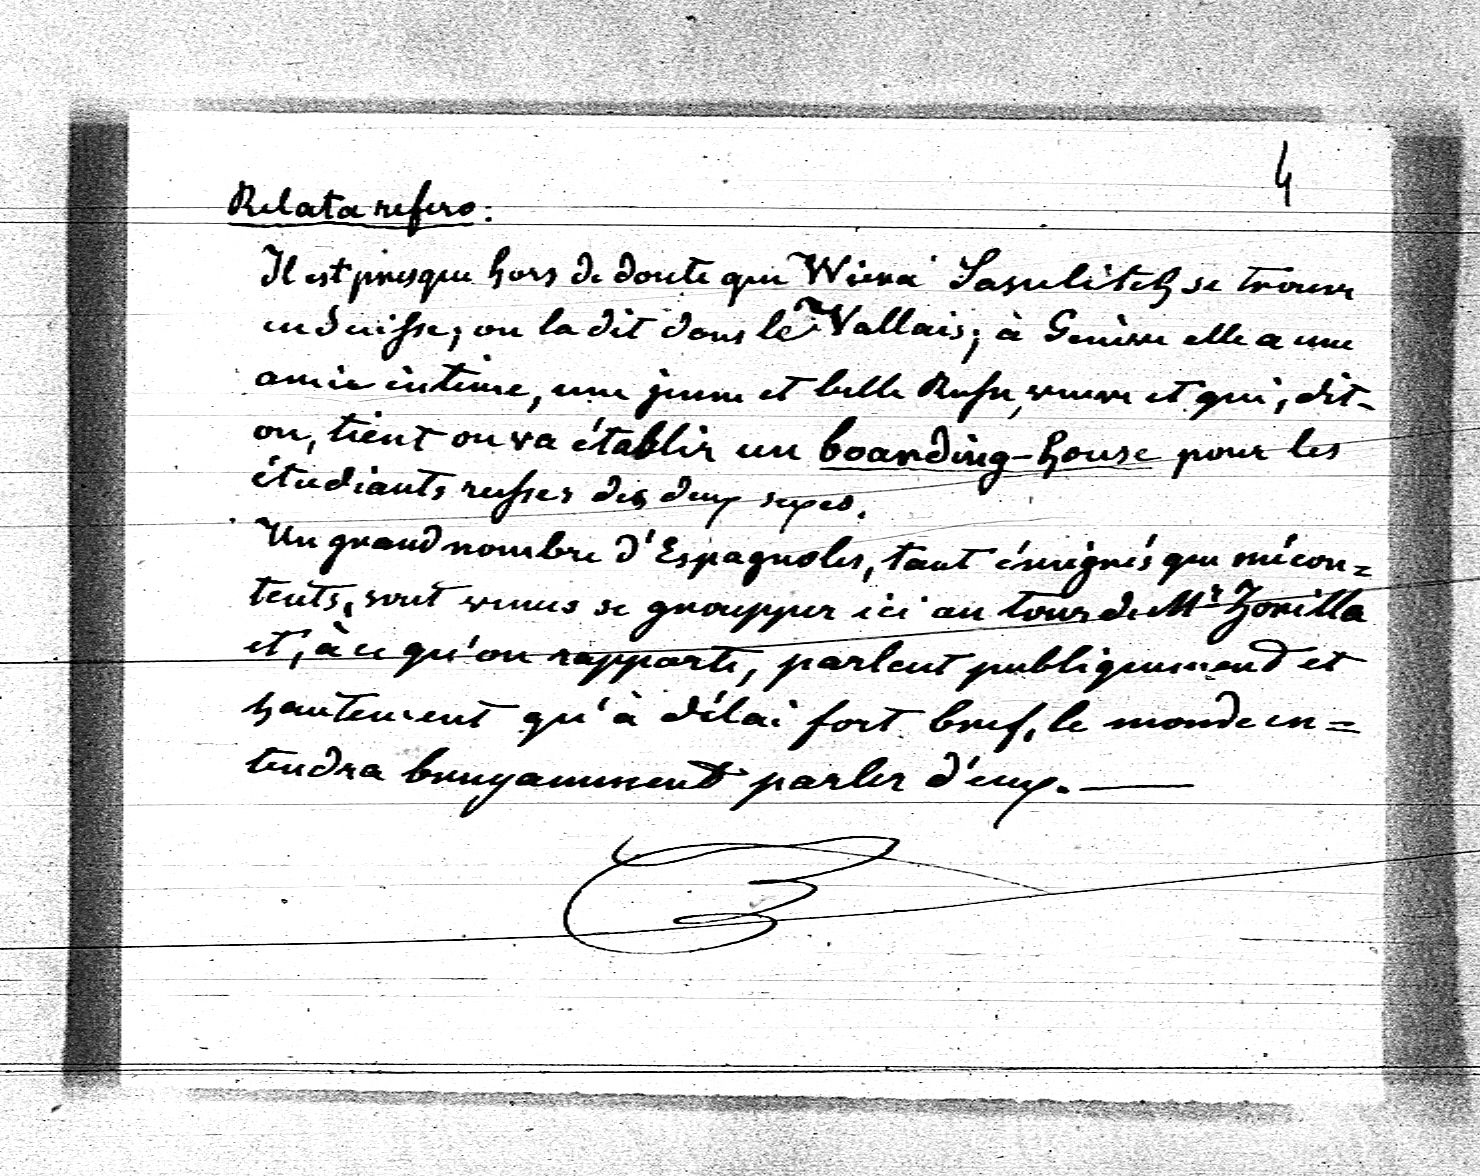 4
Relata refero:
Il est presque hors de doute que Wiera Sasulitch se trouve
en Suisse; on la dit dans le Vallais; à Genève elle a une
amie intime, une jeune et belle Russe, veuve et qui, dit-
on, tient ou va établir un boarding-house pour les
étudiants russes des deux sexes.
Un grand nombre d'Espagnoles, tant émigrés que mécon=
tents, sont venus se groupper ici au tour de Mr Zorilla
et, à ce qu'on rapporte, parlent publiquement et
hautement qu'à délai fort bref, le monde en=
tendra bruyamment parler d'eux.